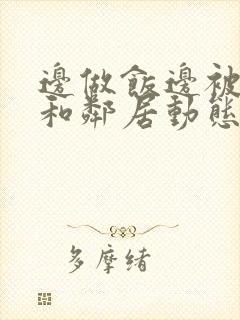 邊做飯邊被
和鄰居動態
多摩緒